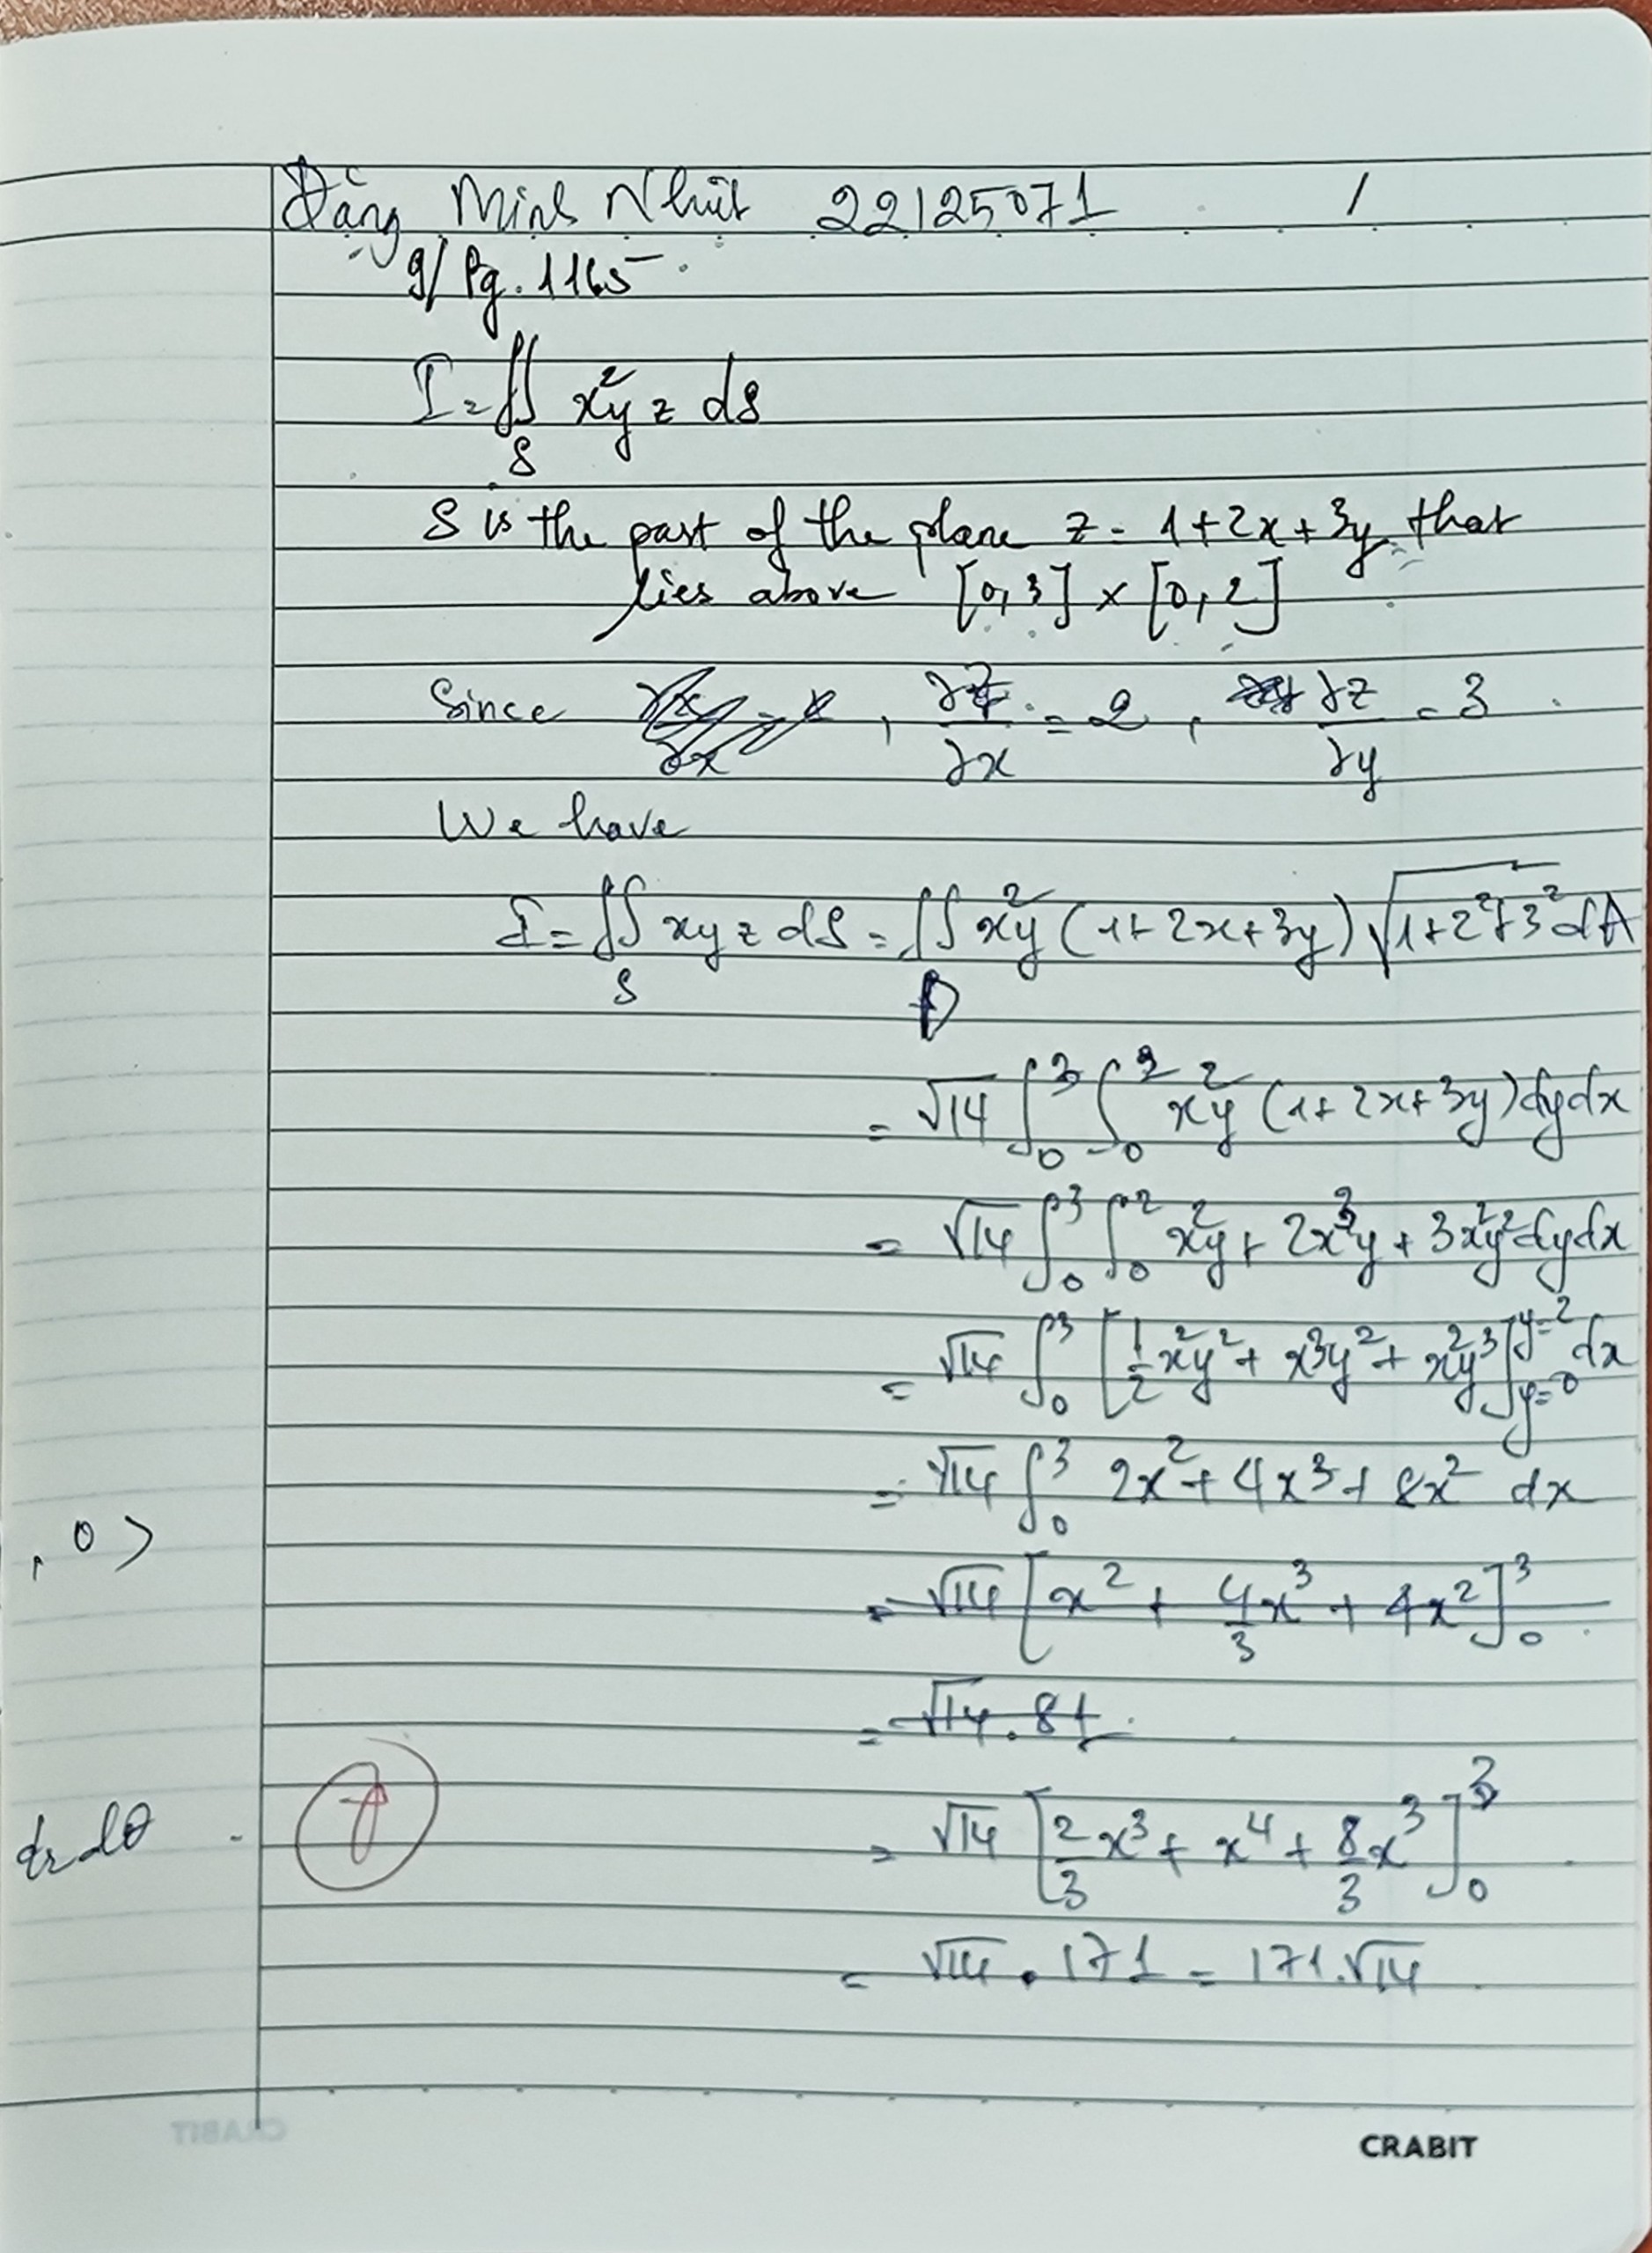 Đặng Minh Nhật 22125071 1
9/ Pg. 1165
I = ∬_S x²yz dS
S is the part of the plane z = 1+2x+3y that
lies above [0,3] × [0,2]
Since , ∂z/∂x = 2 , ∂z/∂y = 3
We have
I = ∬_S xyz dS = ∬_D x²y (1+2x+3y) √(1+2²+3²) dA
= √14 ∫₀³ ∫₀² x²y (1+2x+3y) dy dx
= √14 ∫₀³ ∫₀² x²y + 2x³y + 3x²y² dy dx
= √14 ∫₀³ [1/2 x²y² + x³y² + x²y³]_{y=0}^{y=2} dx
= √14 ∫₀³ 2x² + 4x³ + 8x² dx
, 0 >
= √14 [x² + 4/3 x³ + 4x²]₀³
= √14 . 81
dr dθ
= √14 [2/3 x³ + x⁴ + 8/3 x³]₀³
= √14 . 171 = 171.√14
CRABIT